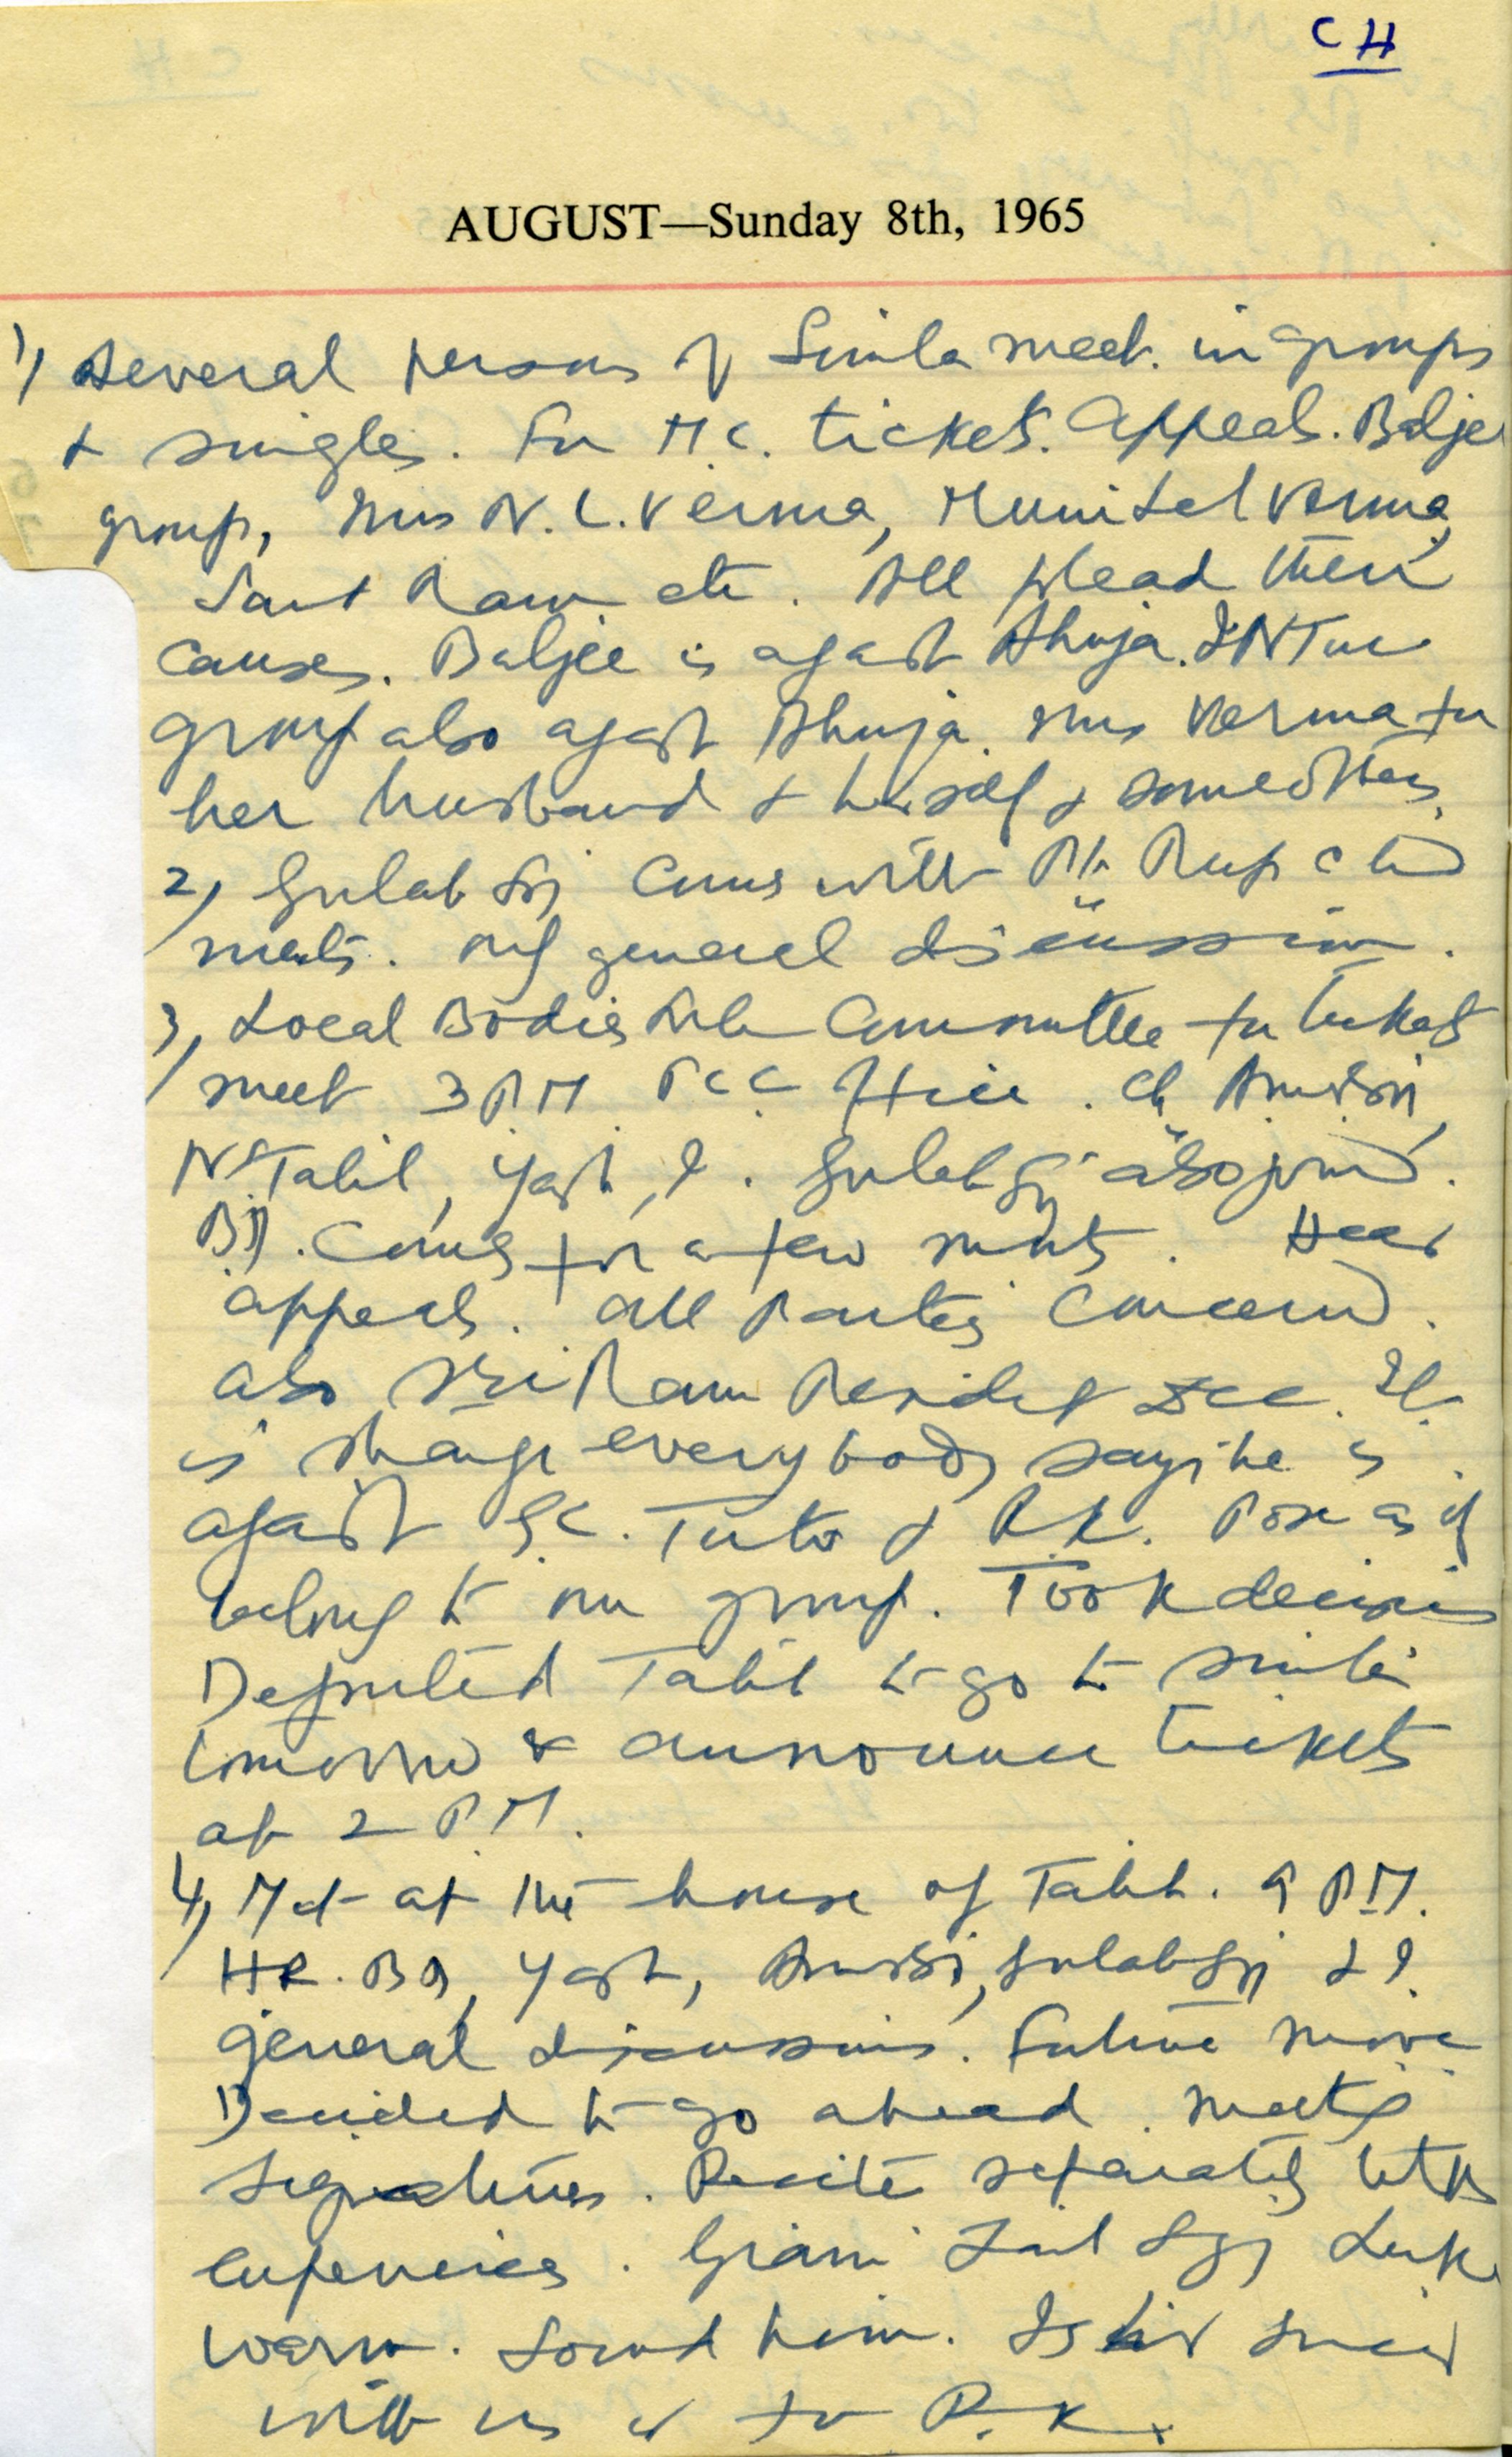 CH
AUGUST—Sunday 8th, 1965
1) Several persons of Simla meet. in groups
& singles. For M.C. tickets. Appeals. Baljee
group, Mrs N.L. Verma, Muni Lal Verma,
Sant Ram etc. All plead their
causes. Baljee is agast Ahuja. INTUC
group also agast Ahuja. Mrs Verma for
her husband & herself & some others.
2) Gulab Sgj comes with Ph. Rup Chd
meets. only general discussion.
3) Local Bodies Sub Committee for tickets
meet 3 PM PCC Office. Ch
N S Talib, Yash, I. Gulab Sgj also joined.
BD. comes for a few minuts. Hear
appeals. All Parties concernd.
also Sri Ram Presidet DCC. It
is strange everybody says he is
agast G.C. & R.K. Pose as if
belong to our group. Took decisions
Deputed Talib to go to Simla
tomorrow & announce tickets
at 2 PM.
4) Met at the house of Talib. 9 PM.
HR. BD, Yash, Gulab Sgj & I.
general discussions. Future move
Decided to go ahead. meets
signatures. separately
experiences. Giani Zail Sgj Luke
warm. Sound him. Is
with us or for R.K.